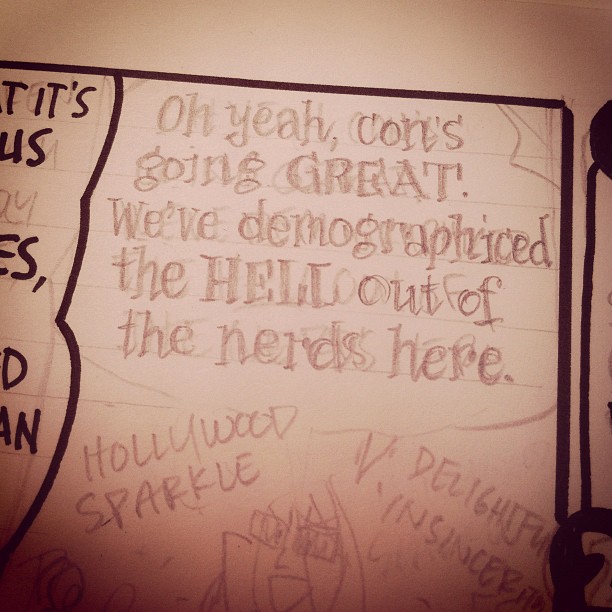 Oh yeah, con's
going GREAT.
We've demographiced
the HELL out of
the nerds here.
T IT'S
US
ES,
D
AN
HOLLYWOOD
SPARKLE
DELIGHTFUL
INSINCER